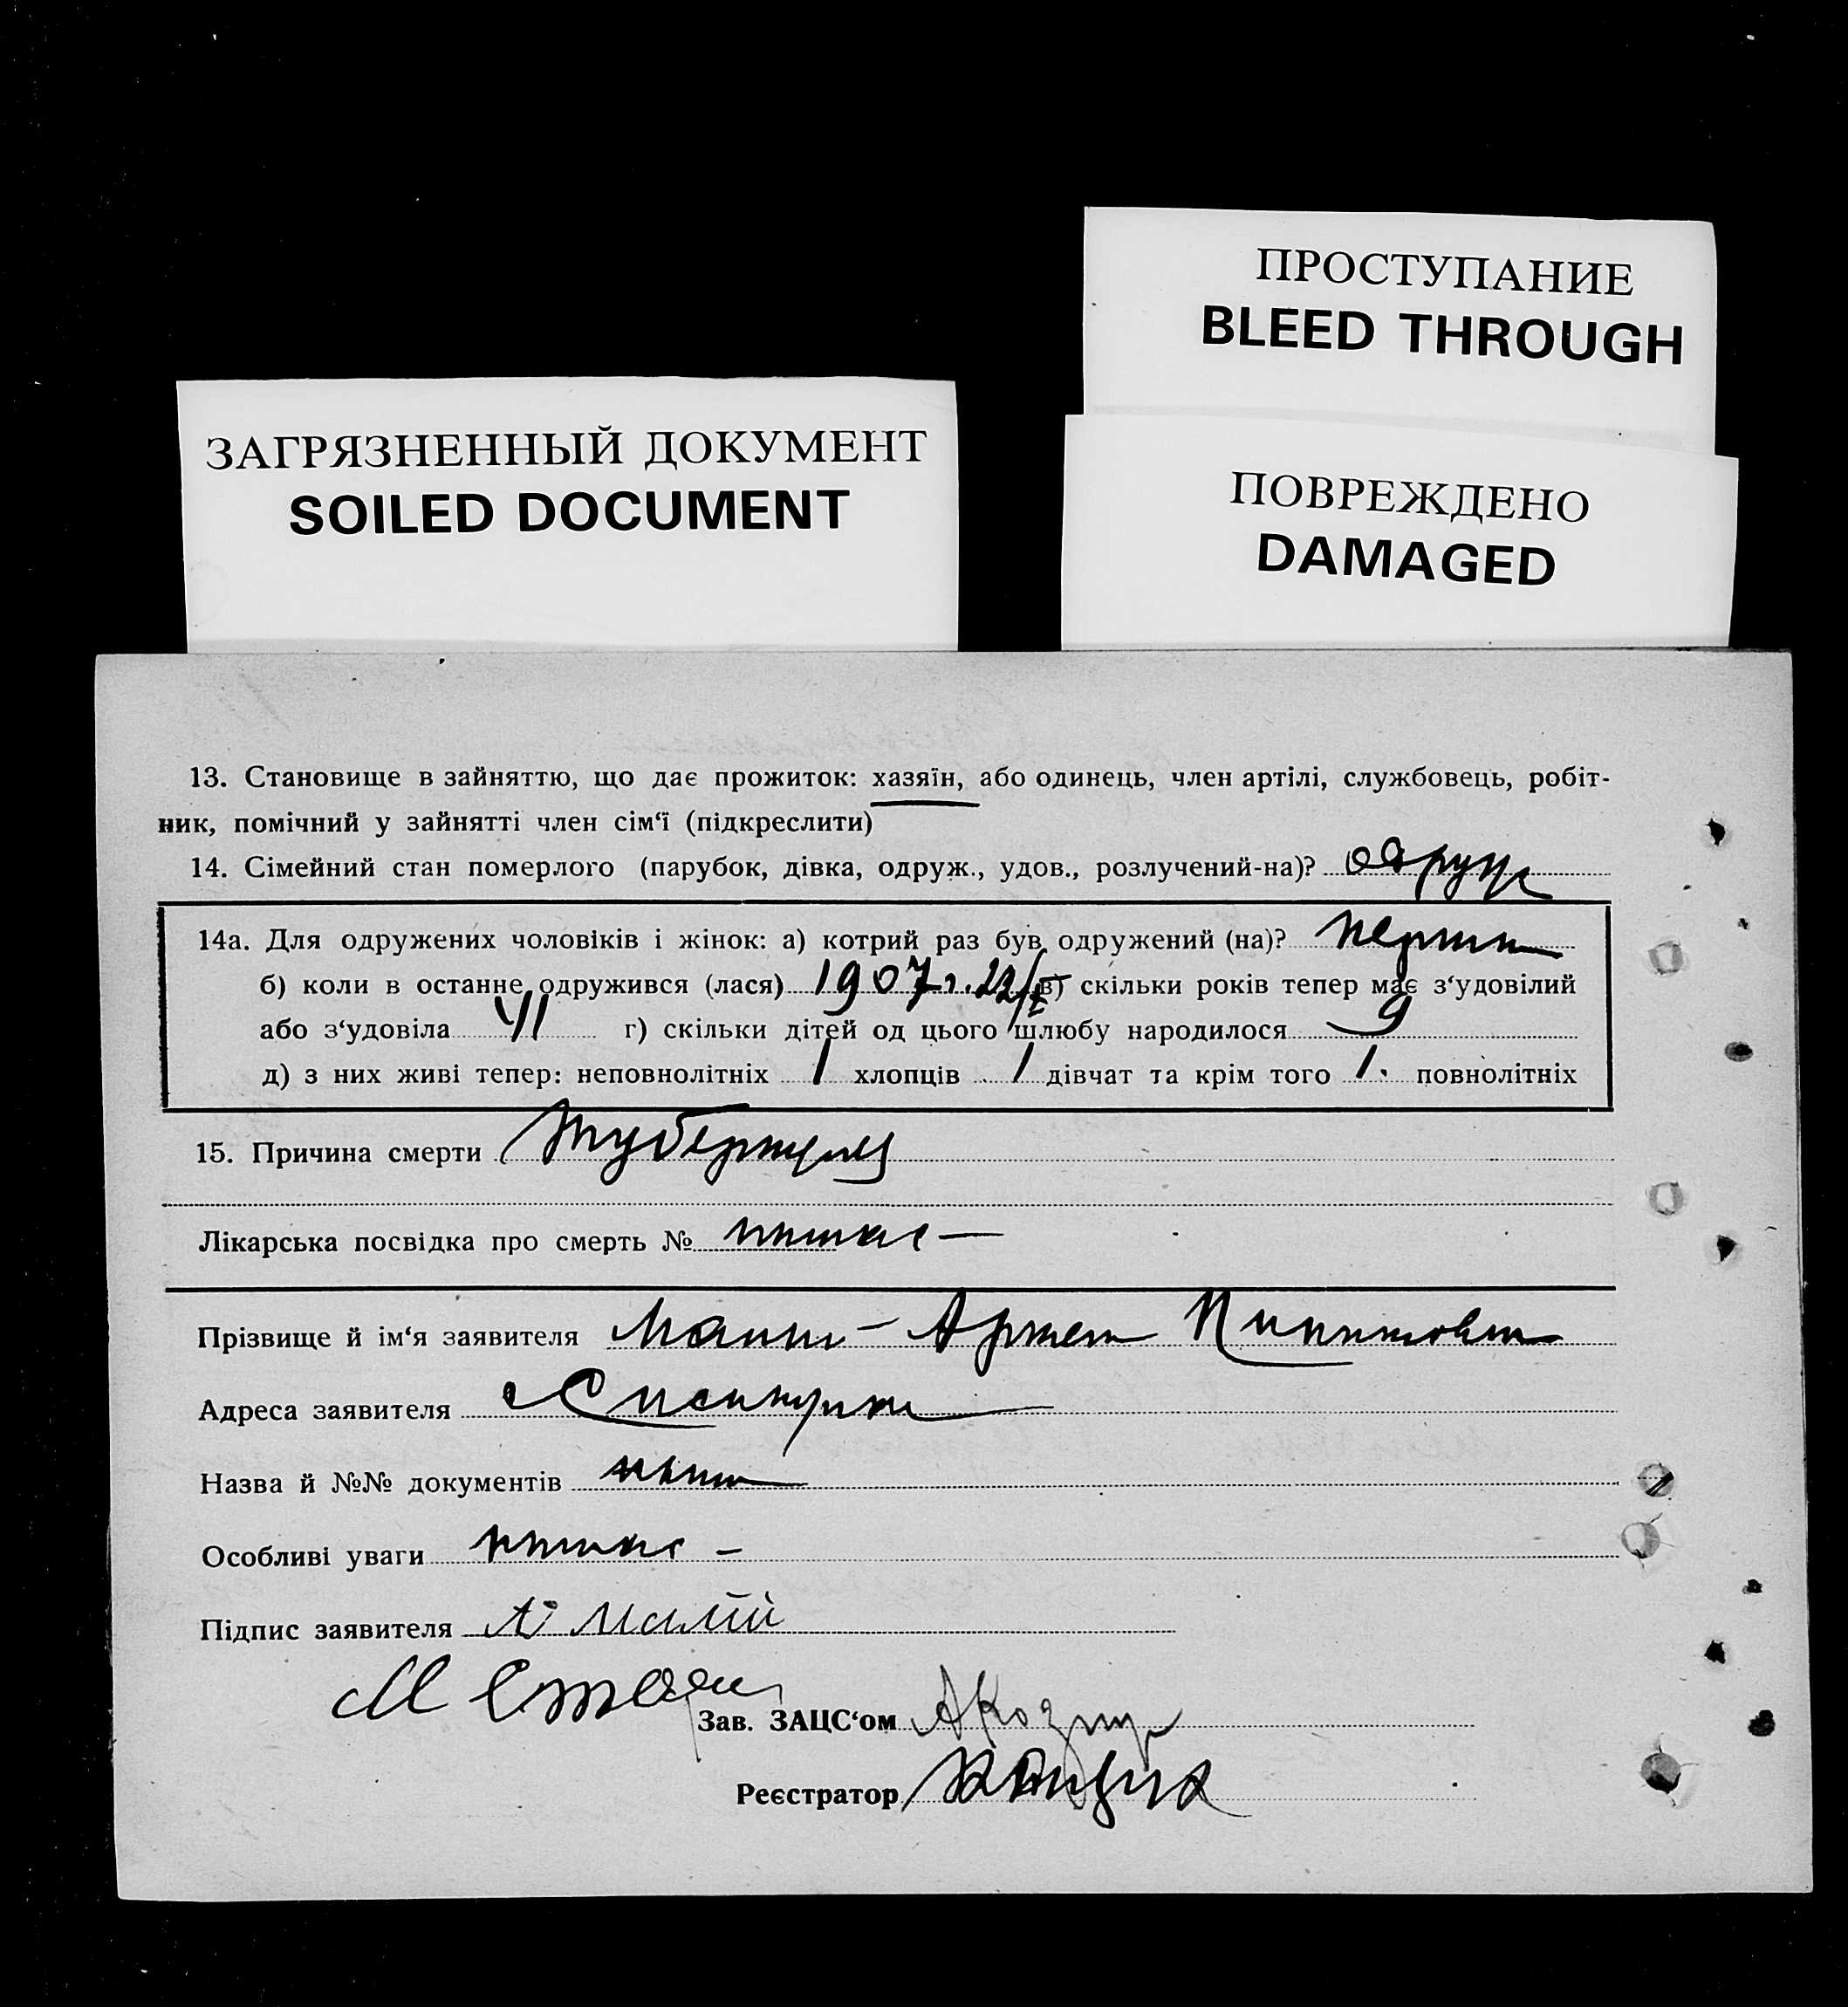 ПРОСТУПАНИЕ
BLEED THROUGH
ЗАГРЯЗНЕННЫЙ ДОКУМЕНТ
SOILED DOCUMENT
ПОВРЕЖДЕНО
DAMAGED
13. Становище в зайняттю, що дає прожиток: хазяїн, або одинець, член артілі, службовець, робіт-
ник, помічний у зайнятті член сім‘ї (підкреслити)
14. Сімейний стан померлого (парубок, дівка, одруж., удов., розлучений-на)? одруж
14а. Для одружених чоловіків і жінок: а) котрий раз був одружений (на)?
б) коли в останнє одружився (лася) 1907 г. в) скільки років тепер має з‘удовілий
або з‘удовіла 41 г) скільки дітей од цього шлюбу народилося 9
д) з них живі тепер: неповнолітніх 1 хлопців 1 дівчат та крім того 1. повнолітніх
15. Причина смерти туберкульоз
Лікарська посвідка про смерть № немає —
Прізвище й ім‘я заявителя Артем
Адреса заявителя
Назва й №№ документів
Особливі уваги немає —
Підпис заявителя А Малий
Зав. ЗАЦС‘ом
Реєстратор